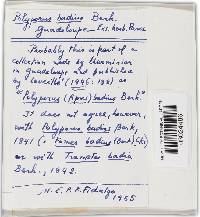 Polyporus badius Berk.
Guadeloupe — Ex. herb. Paris
Probably this is part of a
collection made by L'herminier
in Guadeloupe and published
by Léveillé (1846: 131) as
"Polyporus (Apus) badius Berk."
It does not agree, however,
with Polyporus badius Berk.
1841 (= Fomes badius (Berk) Cke)
or with Trametes badia
Berk., 1842.
M. E. P. K. Fidalgo
1965